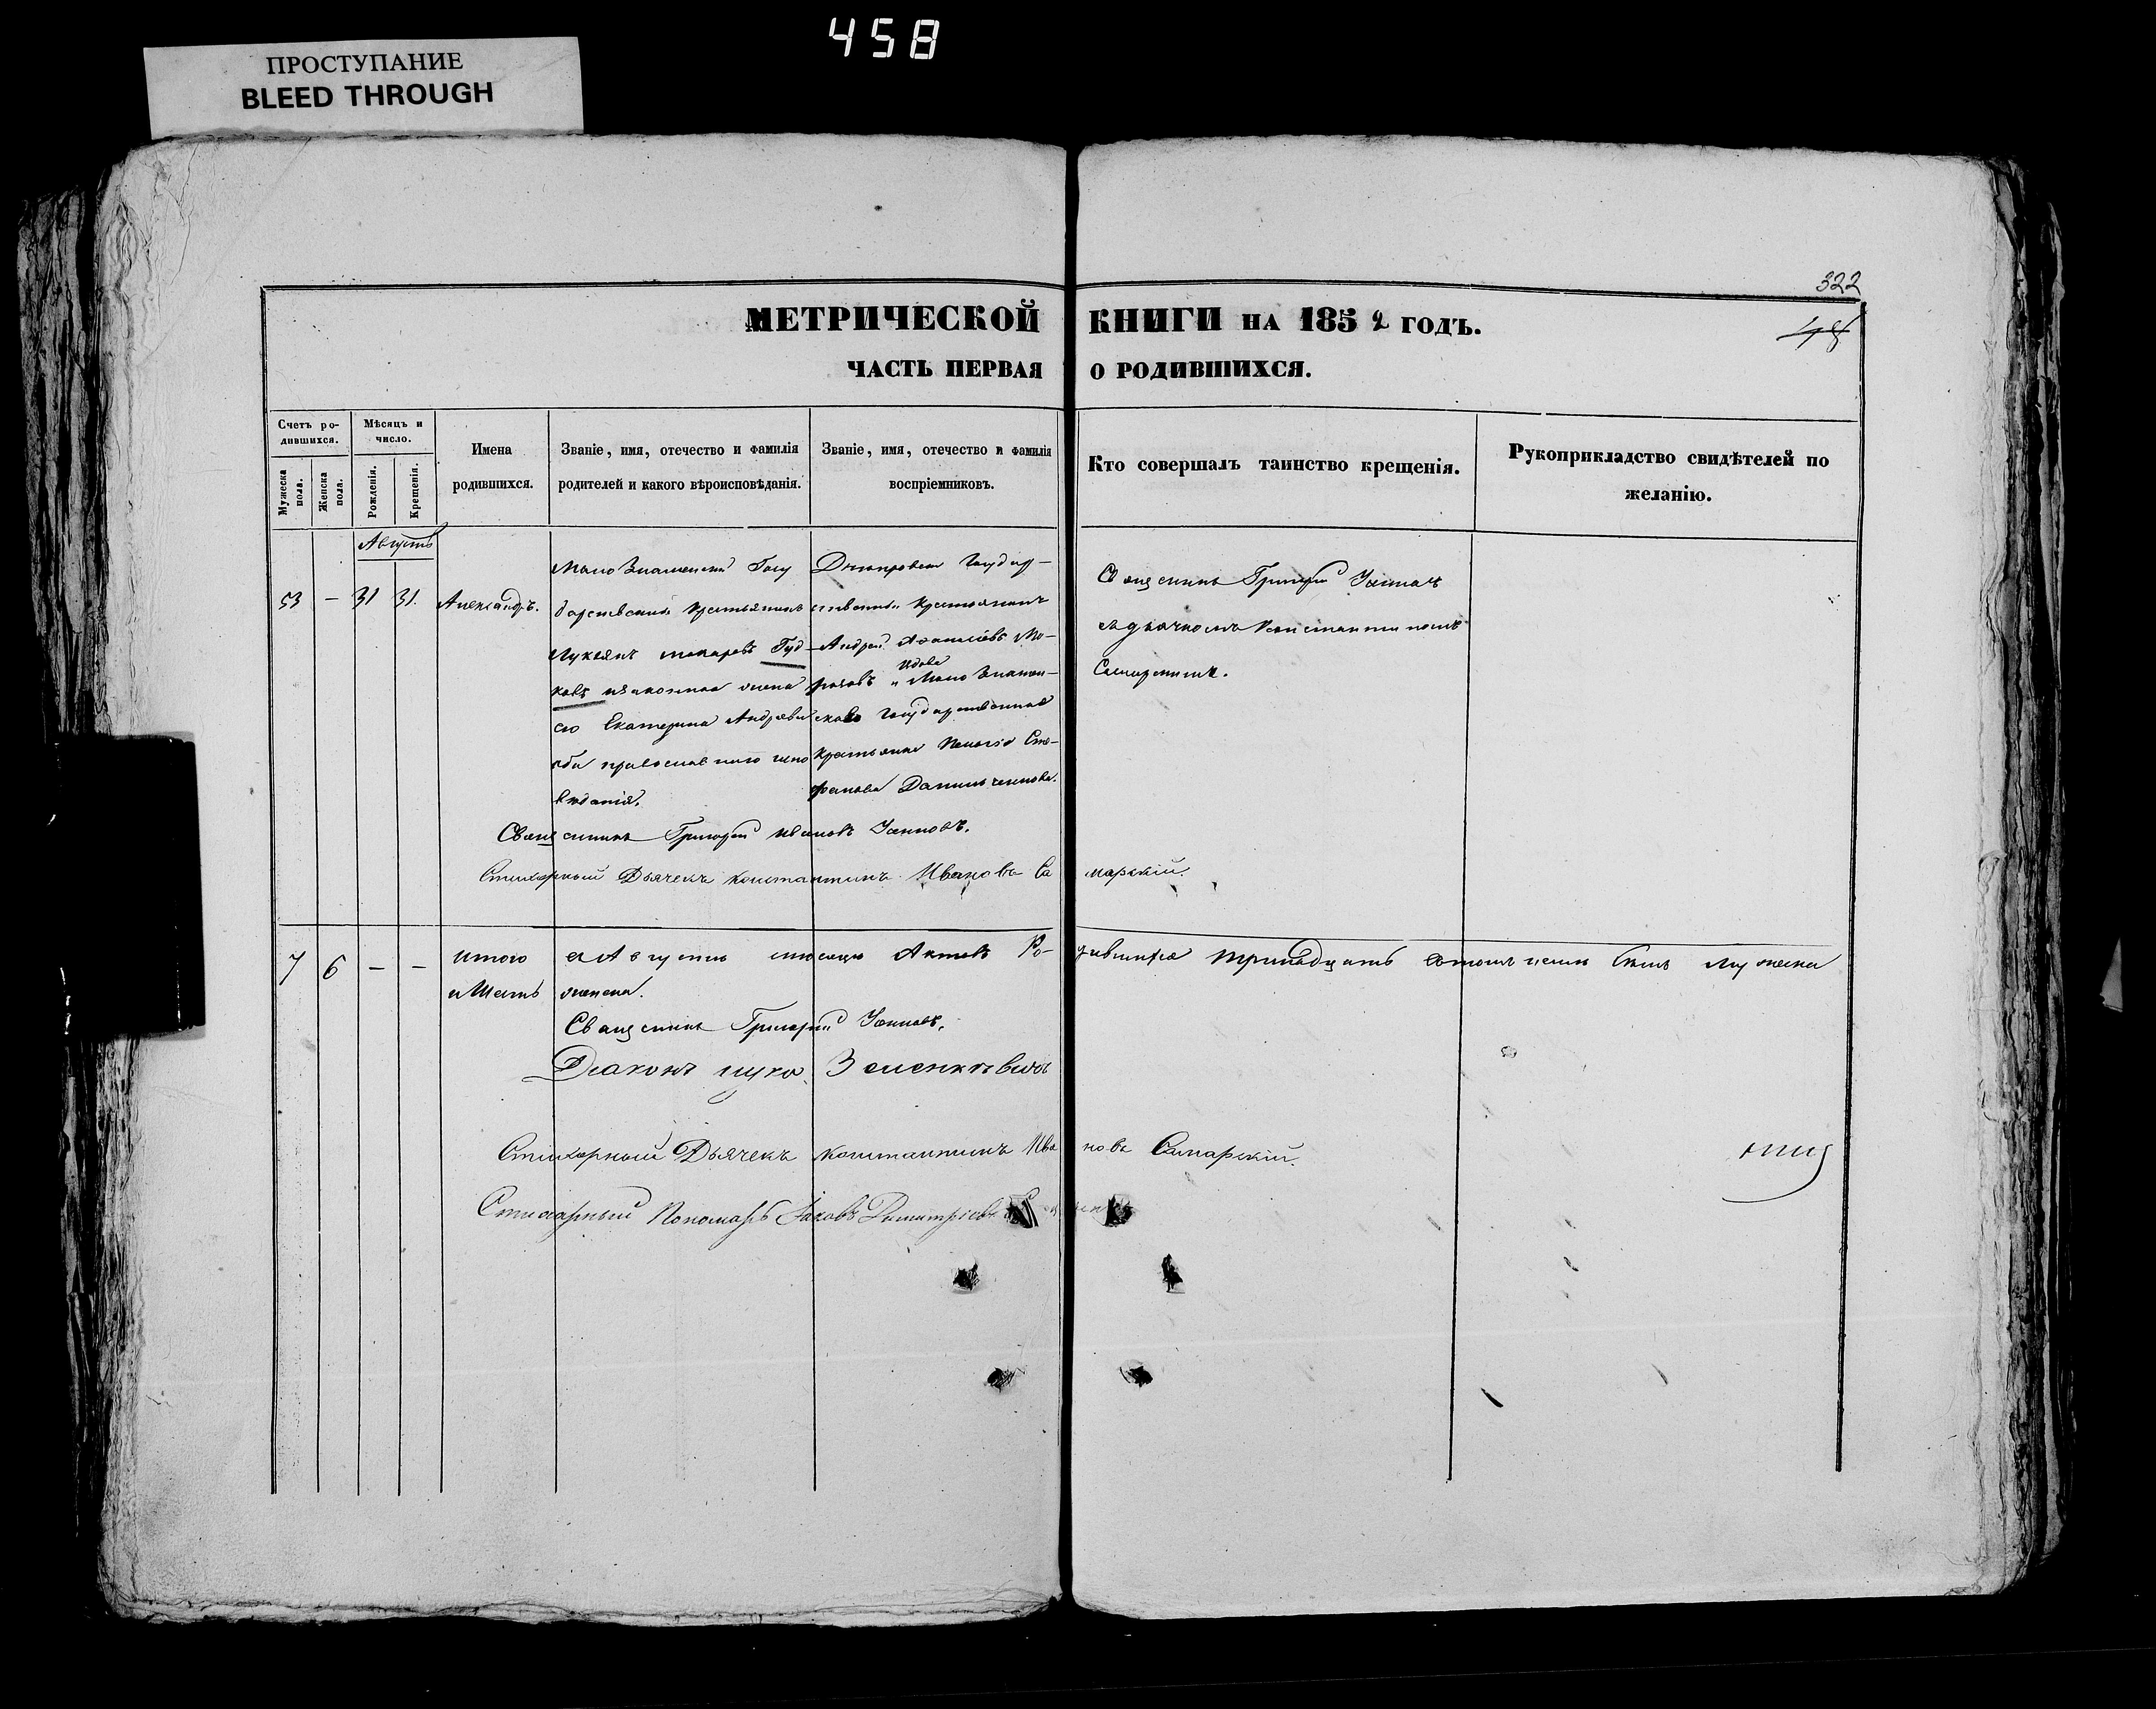 458
ПРОСТУПАНИЕ
BLEED THROUGH
322
МЕТРИЧЕСКОЙ КНИГИ НА 1852 ГОДЪ.
ЧАСТЬ ПЕРВАЯ О РОДИВШИХСЯ.
Счетъ ро-
дившихся.
Мужеска пола.
Женска пола.
Мѣсяцъ и
число.
Рожденія.
Крещенія.
Имена
родившихся.
Званіе, имя, отечество и фамилія
родителей и какого вѣроисповѣданія.
Званіе, имя, отечество и фамилія
воспріемниковъ.
Кто совершалъ таинство крещенія.
Рукоприкладство свидѣтелей по
желанію.
Августъ
53 — 31 31. Александръ.
Мало Знаменский Госу
дарственный крестьянинъ
Лукьянъ Гуд
ковъ и законная жена
его Екатерина Андреева
оба православного испо
вѣданія.
Днепровски Государ-
ственный крестьянинъ
Андрей Мо-
розовъ и вдова Мало Знамен-
ская Государственная
крестьянка Сте-
фанова Данильченкова.
Священникъ Григорий
съ дьячкомъ Константиномъ
Самарскимъ.
Священникъ Григорий Ивановъ
Стихарный Дьячекъ Константинъ Ивановъ Самарскій.
7 6 — — Итого въ Августѣ месяцѣ Актовъ Ро-дившихся тринадцать въ томъ числѣ семь мужеска
и шесть женска.
Священникъ Григорий
Диаконъ Лука
Стихарный Дьячекъ Константинъ Ивановъ Самарскій.
Стихарный Пономарь Іаковъ Димитріевъ